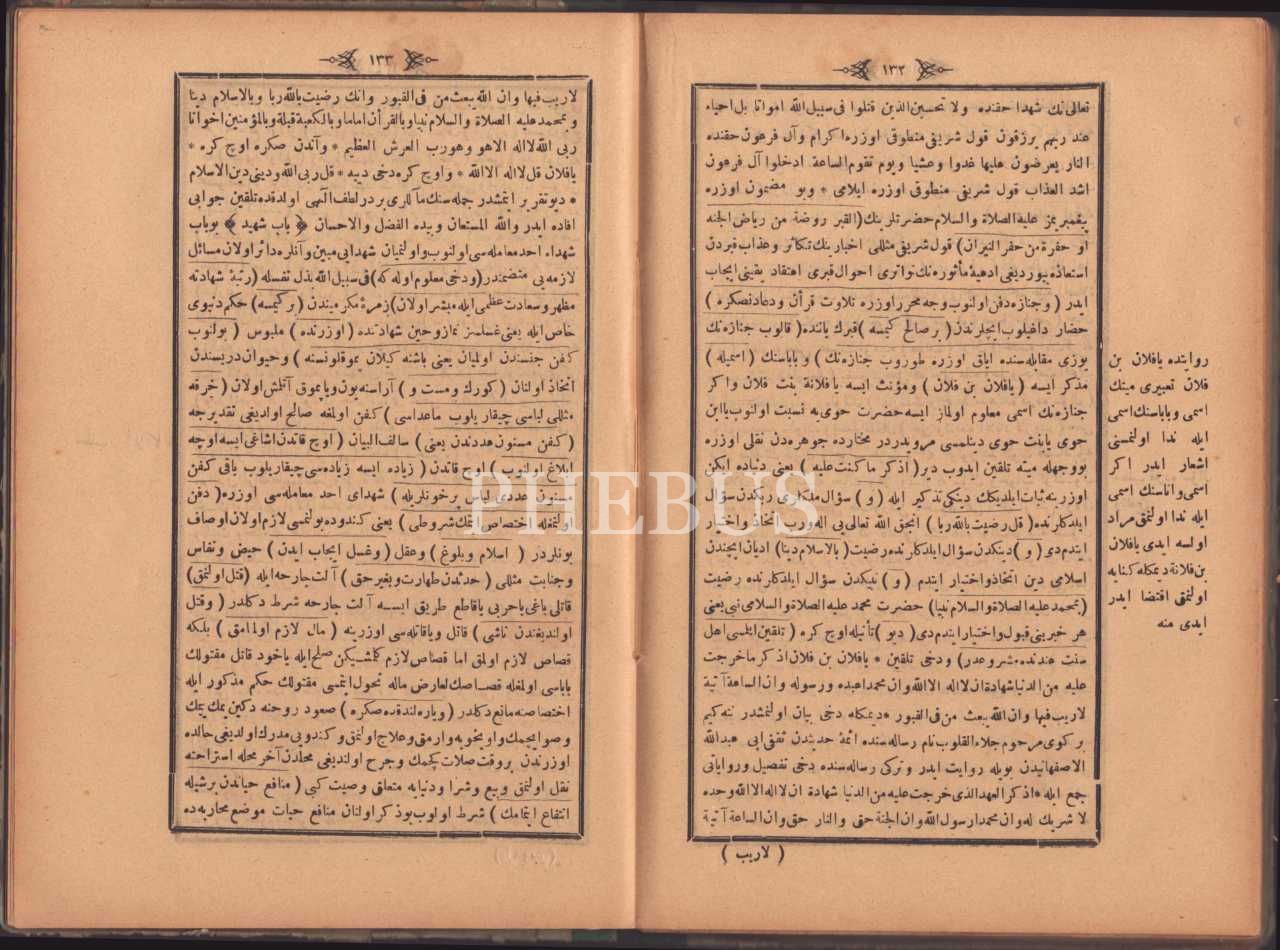 ١٣٢
تعالى نك شهدا حقنده ولا تحسبن الذين قتلوا فى سبيل الله امواتا بل احياء
عند ربهم يرزقون قول شريفى منطوقى اوزره اكرام وآل فرعون حقنده
النار يعرضون عليها غدوا وعشيا ويوم تقوم الساعة ادخلوا آل فرعون
اشد العذاب قول شريفى منطوقى اوزره ايلامى * وبو مضمون اوزره
پيغمبريمز عليه الصلاة والسلام حضرتلرينك (القبر روضة من رياض الجنه
او حفرة من حفر النيران) قول شريفى مثللى اخبارينك تكاثر وعذاب قبردن
استعاذه بيورديغى ادعيۀ مأثوره نك تواترى احوال قبرى اعتقاد يقينى ايجاب
ايدر (وجنازه دفن اولنوب وجه محرر اوزره تلاوت قرآن ودعادنصكره)
حضار داغيلوب ايچلرندن (بر صالح كيمسه) قبرك ياننده (قالوب جنازه نك
يوزى مقابله سنده اياق اوزره طوروب جنازه نك) وباباسنك (اسميله)
مذكر ايسه (يافلان بن فلان) ومؤنث ايسه يافلانة بنت فلان واكر
جنازه نك اسمى معلوم اولماز ايسه حضرت حوى يه نسبت اولنوب ياابن
حوى يابنت حوى دينلمسى مرويدر در مختارده جوهره دن نقلى اوزره
بووجهله ميته تلقين ايدوب دير (اذكر ماكنت عليه) يعنى دنياده ايكن
اوزرينه ثبات ايلديكك دينكى تذكير ايله (و) سؤال ملكلرى ربكدن سؤال
ايلدكلرنده (قل رضيت بالله ربا) انجق الله تعالى يى اله ورب اتخاذ واختيار
ايتدم دى (و) دينكدن سؤال ايلدكلرنده رضيت (بالاسلام دينا) اديان ايچندن
اسلامى دين اتخاذ واختيار ايتدم (و) نبيكدن سؤال ايلدكلرنده رضيت
(بمحمد عليه الصلاة والسلام نبيا) حضرت محمد عليه الصلاة والسلامى نبى يعنى
هر خبرينى قبول واختيار ايتدم دى (ديو) تأنيله اوچ كره (تلقين ايلمسى اهل
سنت عندنده مشروعدر) ودخى تلقين * يافلان بن فلان اذكر ماخرجت
عليه من الدنيا شهادة ان لااله الاالله وان محمدا عبده ورسوله وان الساعة آتية
لاريب فيها وان الله يبعث من فى القبور * ديمكله دخى بيان اولنمشدر نته كيم
بركوى مرحوم جلاء القلوب نام رساله سنده ائمۀ حديثدن ثقفى ابى عبدالله
الاصفهانيدن بويله روايت ايدر وتركى رساله سنده دخى تفصيل ورواياتى
جمع ايله * اذكر العهد الذى خرجت عليه من الدنيا شهادة ان لااله الاالله وحده
لا شريك له وان محمدا رسول الله وان الجنة حق والنار حق وان الساعة آتية
(لاريب)
روايتده يافلان بن
فلان تعبيرى ميتك
اسمى وباباسنك اسمى
ايله ندا اولنمسنى
اشعار ايدر اكر
اسمى واناسنك اسمى
ايله ندا اولنمق مراد
اولسه ايدى يافلان
بن فلانة ديمكله كنايه
اولنمق اقتضا ايدر
ايدى منه
١٣٣
لاريب فيها وان الله يبعث من فى القبور وانك رضيت بالله ربا وبالاسلام دينا
وبمحمد عليه الصلاة والسلام نبيا وبالقرأن اماما وبالكعبة قبلة وبالمؤمنين اخوانا
ربى الله لااله الاهو وهورب العرش العظيم * وآندن صكره اوچ كره *
يافلان قل لااله الاالله * واوچ كره دخى دييه * قل ربى الله ودينى دين الاسلام
* ديو تقرير ايتمشدر جمله سنك مآللرى بردر لطف الٓهى اولدقده تلقين جوابى
افاده ايدر والله المستعان وبيده الفضل والاحسان ﴿ باب شهيد ﴾ بوباب
شهداء احد معامله سى اولنوب واولنميان شهدايى مبين وآنلره دائر اولان مسائل
لازمه يى متضمندر (ودخى معلوم اوله كه) فى سبيل الله بذل نفسله (رتبۀ شهادته
مظهر وسعادت عظمى ايله مبشر اولان) زمرۀ مكرميندن (بر كيمسه) حكم دنيوى
خاص ايله يعنى غسلسز نماز وحين شهادنده (اوزرنده) ملبوس (بولنوب
كفن جنسندن اولميان يعنى باشنه كيلان بموقلونسنه) وحيوان دريسندن
اتخاذ اولنان (كورك ومست و) آراسنه يون وياپموق آتلمش اولان (خرقه
مثللى لباسى چيقاريلوب ماعداسى) كفن اولمغه صالح اولديغى تقديرجه
(كفن مسنون عددندن يعنى) سالف البيان (اوچ قاتدن اشاغى ايسه اوچه
ابلاغ اولنوب) اوچ قاتدن (زياده ايسه زياده سى چيقاريلوب باقى كفن
مسنون عددى لباس پرخونلريله) شهداى احد معامله سى اوزره (دفن
اولنمغله اختصاص ايتمك شروطى) يعنى كندوده بولنمسى لازم اولان اوصاف
بونلردر (اسلام وبلوغ) وعقل (وغسل ايجاب ايدن) حيض ونفاس
وجنابت مثللى (حدثدن طهارت وبغير حق) آلت جارحه ايله (قتل اولنمق)
قاتلى باغى ياحربى ياقاطع طريق ايسه آلت جارحه شرط دكلدر (وقتل
اولنديغندن ناشى) قاتل وياقاتله سى اوزرينه (مال لازم اولمامق) بلكه
قصاص لازم اولمق اما قصاص لازم كلمشيكن صلح ايله ياخود قاتل مقتولك
باباسى اولمغله قصاصك لعارض ماله تحول ايتمسى مقتولك حكم مذكور ايله
اختصاصنه مانع دكلدر (وياره لندقدنصكره) صعود روحنه دكين يمك ييمك
وصو ايچمك واويخويه وارمق وعلاج اولنمق وكندويى مدرك اولديغى حالده
اوزرندن بروقت صلات كچمك وجرح اولنديغى محلدن آخر محله استراحته
نقل اولنمق وبيع وشرا ودنيايه متعلق وصيت كبى (منافع حياتدن برشيله
انتفاع ايتمامك) شرط اولوب بوذكر اولنان منافع حيات موضع محاربه ده
PHEBUS